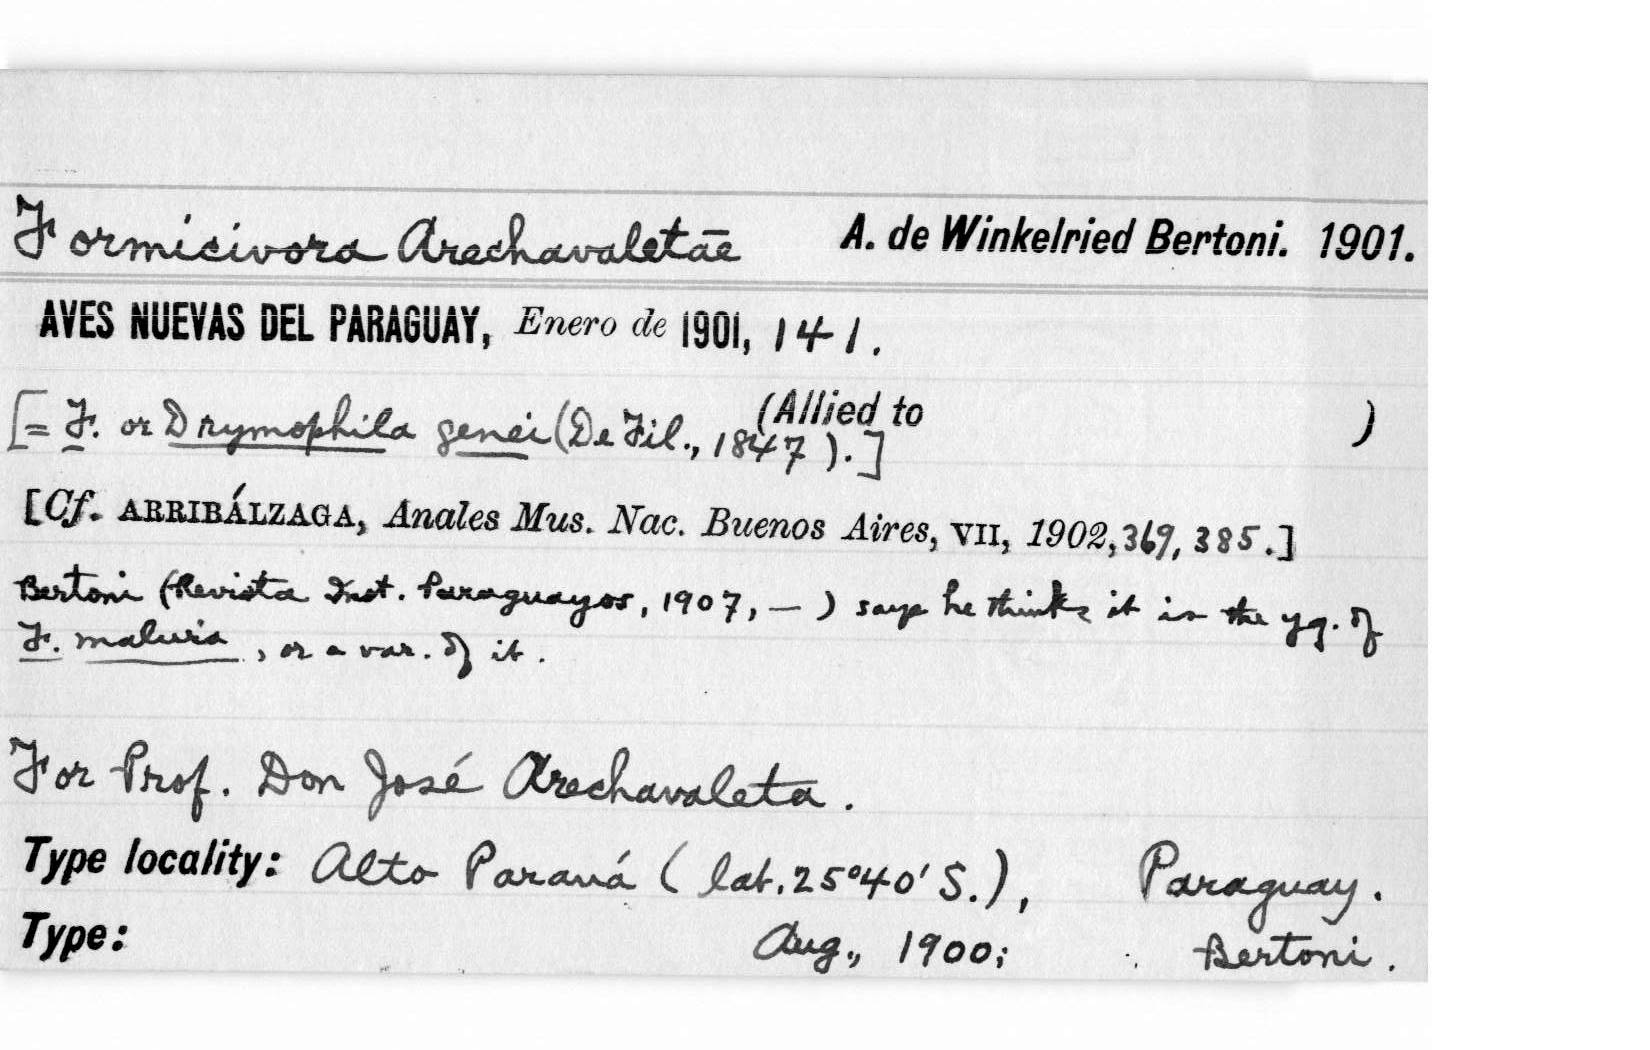 Formicivora Arechavaletāe A. de Winkelried Bertoni. 1901.
AVES NUEVAS DEL PARAGUAY, Enero de 1901, 141.
(Allied to )
[= F. or Drymophila genei (De Fil., 1847).]
[Cf. ARRIBÁLZAGA, Anales Mus. Nac. Buenos Aires, VII, 1902, 369, 385.]
Bertoni (Revista Inst. Paraguayos, 1907, — ) says he thinks it is the yg. of
F. maluria, or a var. of it.
For Prof. Don José Arechavaleta.
Type locality: Alto Paraná (lat. 25°40' S.), Paraguay.
Type: Aug., 1900; Bertoni.